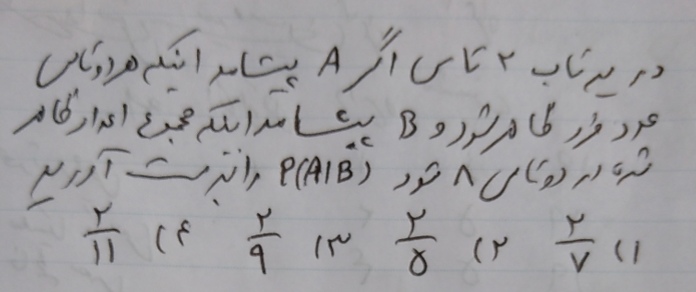 در پرتاب ۲ تاس اگر A پیشامد اینکه هر دو تاس
عدد فرد ظاهر شود و B پیشامد اینکه مجموع اعداد ظاهر
شده در دو تاس ۸ شود P(A|B) را بدست آورید
۱) ۲/۷ ۲) ۲/۵ ۳) ۲/۹ ۴) ۲/۱۱